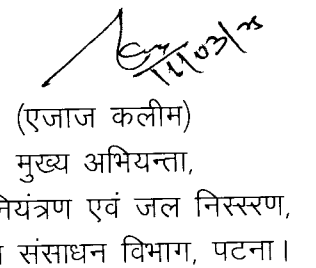 11/03/25
(एजाज कलीम)
मुख्य अभियन्ता,
नियंत्रण एवं जल निस्सरण,
संसाधन विभाग, पटना।